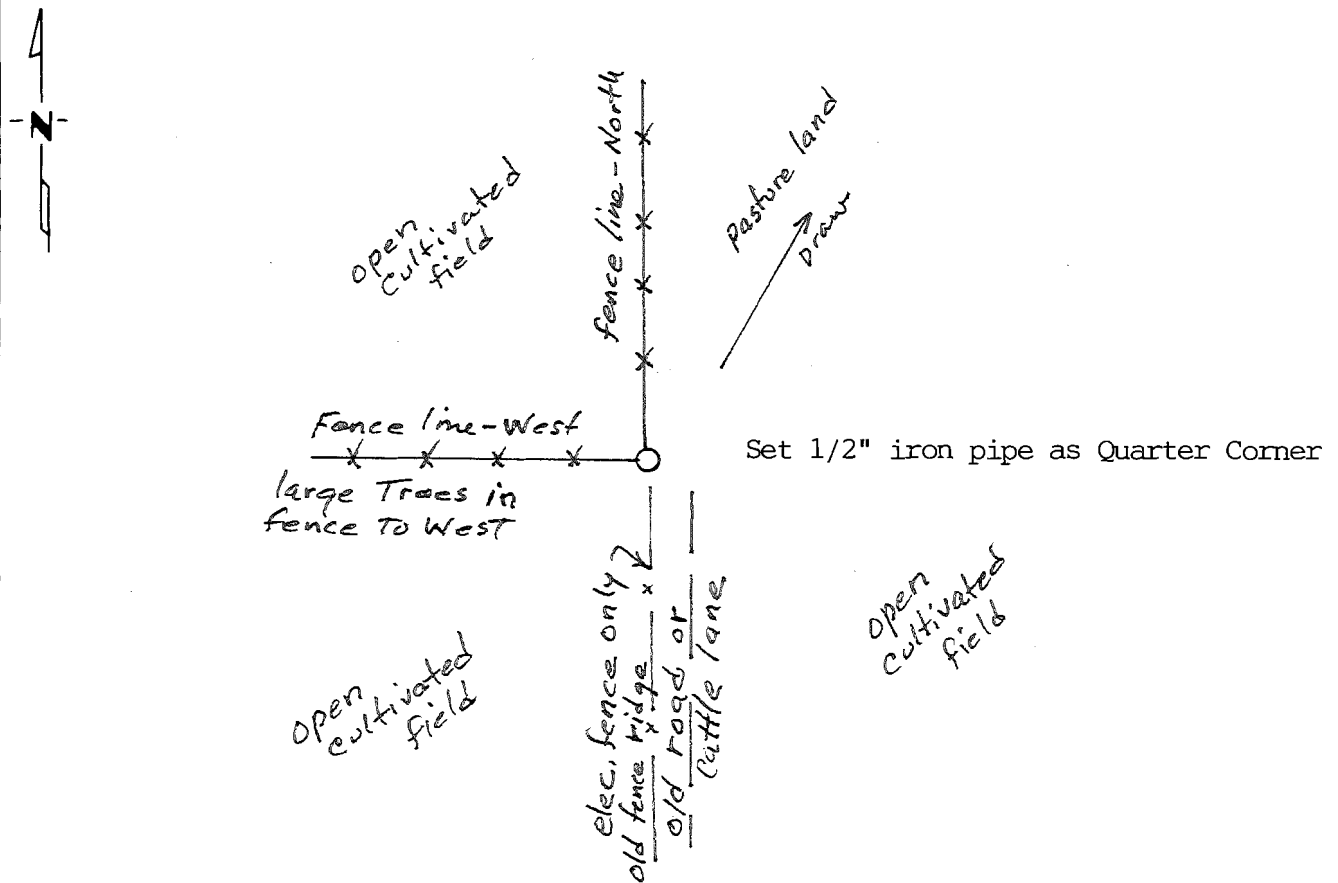 N
fence line-North
Pasture land
Draw
open
cultivated
field
Fence line-West
large Trees in
fence To West
Set 1/2" iron pipe as Quarter Corner
elec. fence only
old fence ridge
old road or
Cattle lane
open
cultivated
field
open
cultivated
field